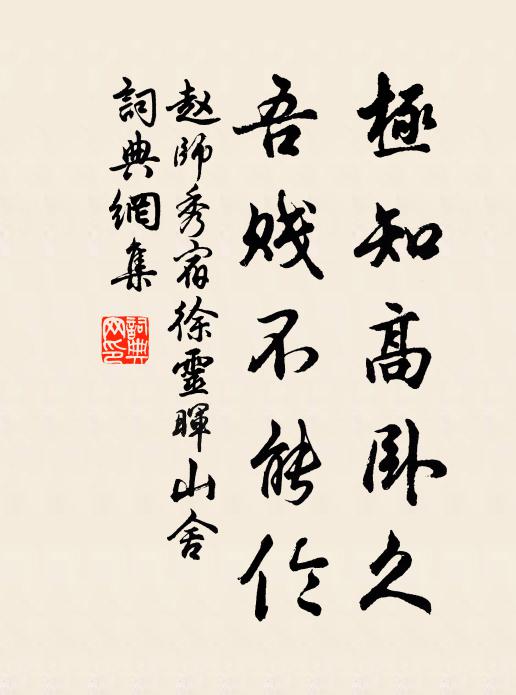 極知高卧久
吾賤不能伶
赵師秀宿徐靈暉山舍
詞典網集
詞典网印